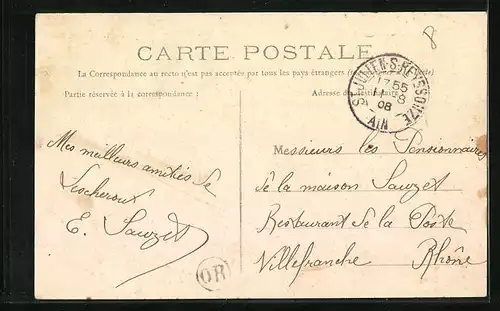 8
CARTE POSTALE
La Correspondance au recto n'est pas acceptée par tous les pays étrangers (
Partie réservée à la correspondance :
Adresse du destinataire
ST JULIEN-S-REYSSOUZE
17 55
11-8
08
AIN
Mes meilleurs amitiés de
E. Sauzet
Messieurs les Pensionnaires
de la maison Sauzet
Restaurant de la Poste
Villefranche Rhône
OR